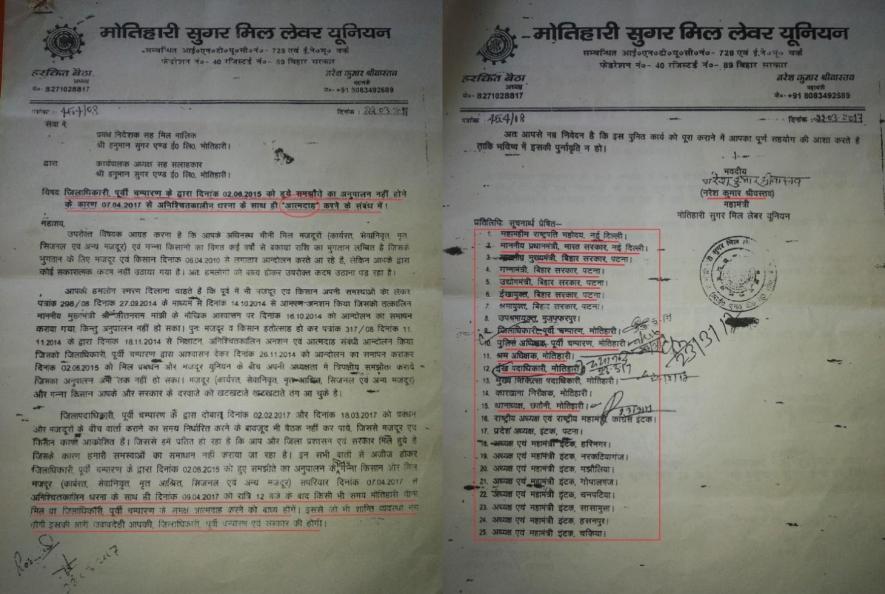 मोतिहारी सुगर मिल लेवर यूनियन
सम्बन्धित आई०एन०टी०यू०सी०नं०- 728 एवं ई०ने०यू० वर्क
फेडरेशन नं०- 40 रजिस्टर्ड नं०- 89 बिहार सरकार
हरकित बेठा
अध्यक्ष
मो०- 8271028817
नरेश कुमार श्रीवास्तव
महामंत्री
मो०- +91 8083492689
पत्रांक 454/08
दिनांक : 22-03-2017
सेवा में,
प्रबंध निदेशक सह मिल मालिक
श्री हनुमान सुगर एण्ड ई० लि०, मोतिहारी।
द्वारा
कार्यपालक अध्यक्ष सह सलाहकार
श्री हनुमान सुगर एण्ड ई० लि०, मोतिहारी।
विषय जिलाधिकारी, पूर्वी चम्पारण के द्वारा दिनांक 02.06.2015 को हुये समझौते का अनुपालन नहीं होने
के कारण 07.04.2017 से अनिश्चितकालीन धरना के साथ ही "आत्मदाह" करने के संबंध में।
महाशय,
उपरोक्त विषयक आग्रह करना है कि आपके अधिनस्थ चीनी मिल मजदूरो (कार्यरत, सेवानिवृत, मृत
सिजनल एवं अन्य मजदूर) एवं गन्ना किसानो का विगत कई वर्षो से बकाया राशि का भुगतान लम्बित है जिसके
भुगतान के लिए मजदूर एवं किसान दिनांक 05.04.2010 से लगातार आन्दोलन करते आ रहे है, लेकिन आपके द्वारा
कोई सकारात्मक कदम नहीं उठाया गया है। अतः हमलोगों को बाध्य होकर उपरोक्त कदम उठाना पड़ रहा है।
आपको हमलोग स्मरण दिलाना चाहते है कि पूर्व में भी मजदूर एवं किसान अपनी समस्याओं को लेकर
पत्रांक 298/08 दिनांक 27.09.2014 के माध्यम से दिनांक 14.10.2014 से आमरण अनशन किया जिसको तत्कालिन
माननीय मुख्यमंत्री श्री जीतनराम मांझी के मौखिक आश्वासन पर दिनांक 16.10.2014 को आन्दोलन का समापन
कराया गया किन्तु अनुपालन नहीं हो सका। पुनः मजदूर एवं किसान हतोत्साह हो कर पत्रांक 317/08 दिनांक 11.
11.2014 के द्वारा दिनांक 18.11.2014 से भिक्षाटन, अनिश्चितकालिन अनशन एवं आत्मदाह संबंधी आन्दोलन किया
जिसको जिलाधिकारी, पूर्वी चम्पारण द्वारा आश्वासन देकर दिनांक 26.11.2014 को आन्दोलन का समापन कराकर
दिनांक 02.06.2015 को मिल प्रबंधन और मजदूर यूनियन के बीच अपनी अध्यक्षता में त्रिपक्षीय समझौता कराये
जिसका अनुपालन अभी तक नहीं हो सका। मजदूर (कार्यरत, सेवानिवृत, मृत आश्रित, सिजनल एवं अन्य मजदूर)
और गन्ना किसान आपके और सरकार के दरवाजे को खटखटाते खटखटाते तंग आ चुके है।
जिलापदाधिकारी, पूर्वी चम्पारण के द्वारा दोबारा दिनांक 02.02.2017 और दिनांक 18.03.2017 को प्रबंधन
और मजदूरों के बीच वार्ता कराने का समय निर्धारित करने के बावजूद भी बैठक नहीं कर पाये, जिससे मजदूर एवं
किसान काफी आक्रोशित है। जिससे हमें प्रतित हो रहा है कि आप और जिला प्रशासन एवं सरकार मिले हुये है
जिसके कारण हमारी समस्याओं का समाधान नहीं कराया जा रहा है। इन सभी बातों से अजीज होकर
जिलाधिकारी, पूर्वी चम्पारण के द्वारा दिनांक 02.06.2015 को हुए समझौते का अनुपालन के गन्ना किसान और मिल
मजदूर (कार्यरत, सेवानिवृत, मृत आश्रित, सिजनल एवं अन्य मजदूर) सपरिवार दिनांक 07.04.2017 से
अनिश्चितकालीन धरना के साथ ही दिनांक 09.04.2017 को रात्रि 12 बजे के बाद किसी भी समय मोतिहारी चीनी
मिल या जिलाधिकारी, पूर्वी चम्पारण के समक्ष आत्मदाह करने को बाध्य होगें। इससे जो भी शान्ति व्यवस्था भंग
होगी इसकी सारी जवाबदेही आपकी, जिलाधिकारी, पूर्वी चम्पारण एवं सरकार की होगी।
मोतिहारी सुगर मिल लेवर यूनियन
सम्बन्धित आई०एन०टी०यू०सी०नं०- 728 एवं ई०ने०यू० वर्क
फेडरेशन नं०- 40 रजिस्टर्ड नं०- 89 बिहार सरकार
हरकित बेठा
अध्यक्ष
मो०- 8271028817
नरेश कुमार श्रीवास्तव
महामंत्री
मो०- +91 8083492689
पत्रांक 454/08
दिनांक : 22-03-2017
अतः आपसे नम्र निवेदन है कि इस पुनित कार्य को पूरा कराने में आपका पूर्ण सहयोग की आशा करते है
ताकि भविष्य में इसकी पुर्नावृति न हो।
भवदीय
नरेश कुमार श्रीवास्तव
(नरेश कुमार श्रीवास्तव)
महामंत्री
मोतिहारी सुगर मिल लेवर यूनियन
प्रतिलिपिः सूचनार्थ प्रेषित–
1. महामहीम राष्ट्रपति महोदय, नई दिल्ली।
2. माननीय प्रधानमंत्री, भारत सरकार, नई दिल्ली।
3. माननीय मुख्यमंत्री, बिहार सरकार, पटना।
4. गन्नामंत्री, बिहार सरकार, पटना।
5. उद्योगमंत्री, बिहार सरकार, पटना।
6. ईखायुक्त, बिहार सरकार, पटना।
7. श्रमायुक्त, बिहार सरकार, पटना।
8. उपश्रमायुक्त, मुजफ्फरपुर।
9. जिलाधिकारी, पूर्वी चम्पारण, मोतिहारी।
10. पुलिस अधिक्षक, पूर्वी चम्पारण, मोतिहारी।
11. श्रम अधिक्षक, मोतिहारी।
12. ईख पदाधिकारी, मोतिहारी।
13. मुख्य चिकित्सा पदाधिकारी, मोतिहारी।
14. कारखाना निरीक्षक, मोतिहारी।
15. थानाध्यक्ष, छतौनी, मोतिहारी।
16. राष्ट्रीय अध्यक्ष एवं राष्ट्रीय महामंत्री, कांग्रेस इंटक।
17. प्रदेश अध्यक्ष, इंटक, पटना।
18. अध्यक्ष एवं महामंत्री इंटक, हरिनगर।
19. अध्यक्ष एवं महामंत्री इंटक, नरकटियागंज।
20. अध्यक्ष एवं महामंत्री इंटक, मझौलिया।
21. अध्यक्ष एवं महामंत्री इंटक, गोपालगंज।
22. अध्यक्ष एवं महामंत्री इंटक, चनपटिया।
23. अध्यक्ष एवं महामंत्री इंटक, सासामुसा।
24. अध्यक्ष एवं महामंत्री इंटक, हसनपुर।
25. अध्यक्ष एवं महामंत्री इंटक, चकिया।